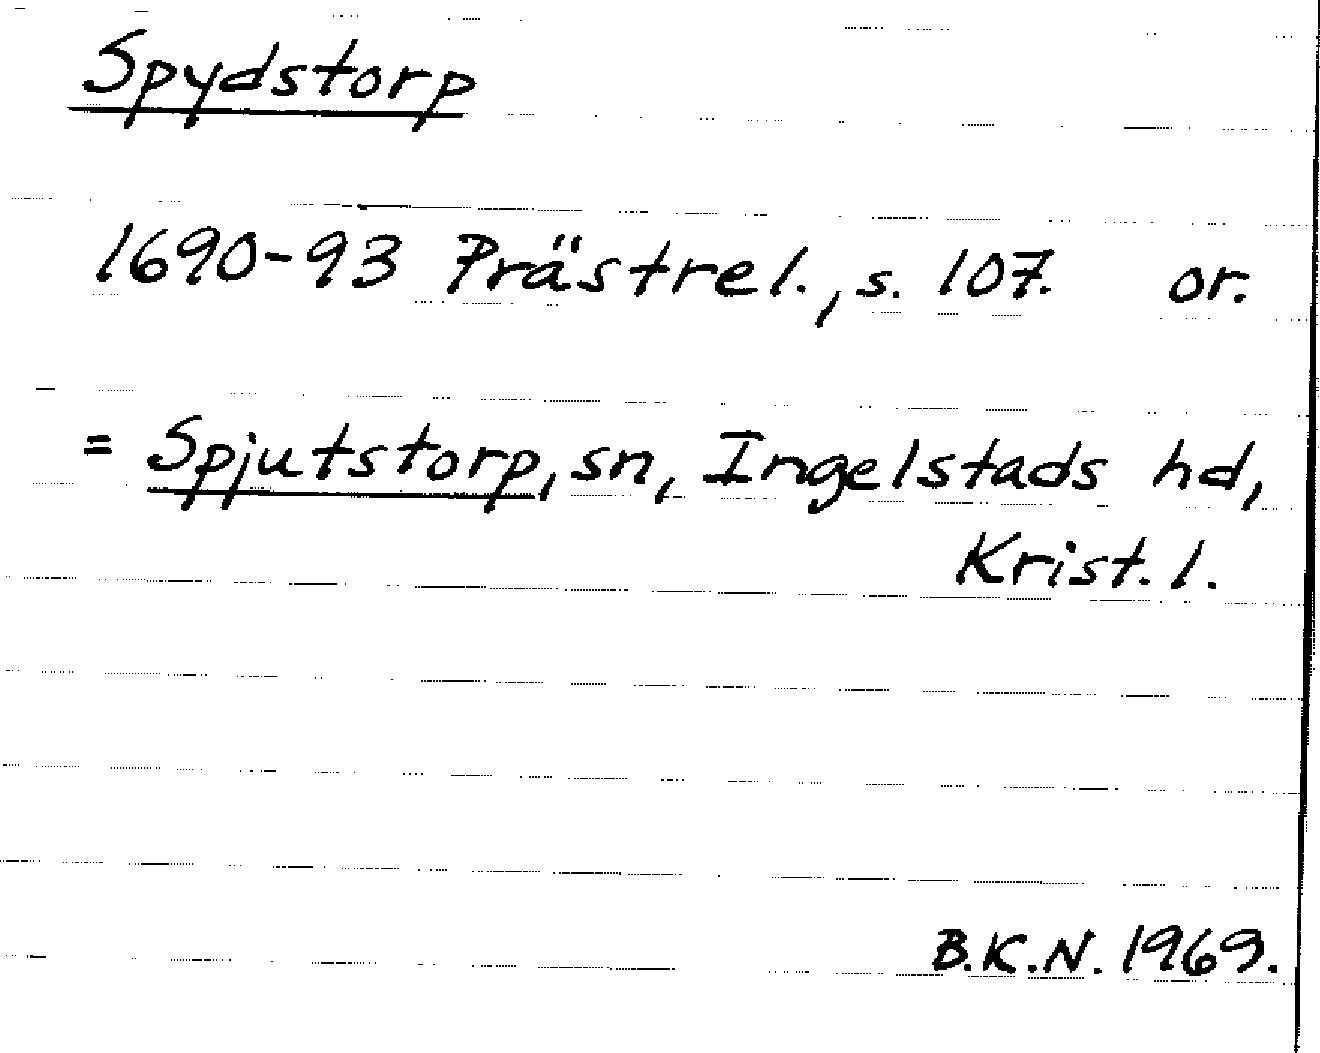 Spydstorp
1690-93 Prästrel., s. 107. or.
= Spjutstorp, sn, Ingelstads hd,
Krist. l.
B.K.N. 1969.